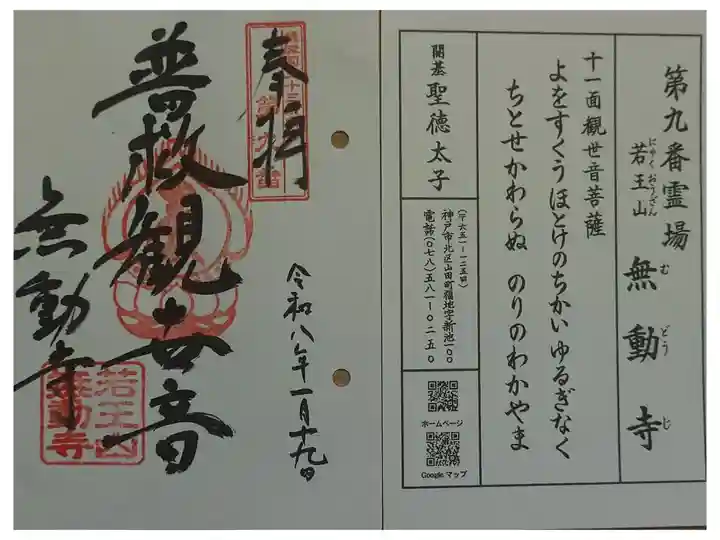 第九番霊場
若王山
にゃくおうざん
無動寺
むどうじ
十一面観世音菩薩
よをすくうほとけのちかいゆるぎなく
ちとせかわらぬ のりのわかやま
開基 聖徳太子
(〒六五一-一二五五)
神戸市北区山田町福地字新池一〇〇
電話(〇七八)五八一-〇二五〇
ホームページ
Google マップ
奉拝
普救観世音
無動寺
若王山
無動寺
令和八年一月十九日